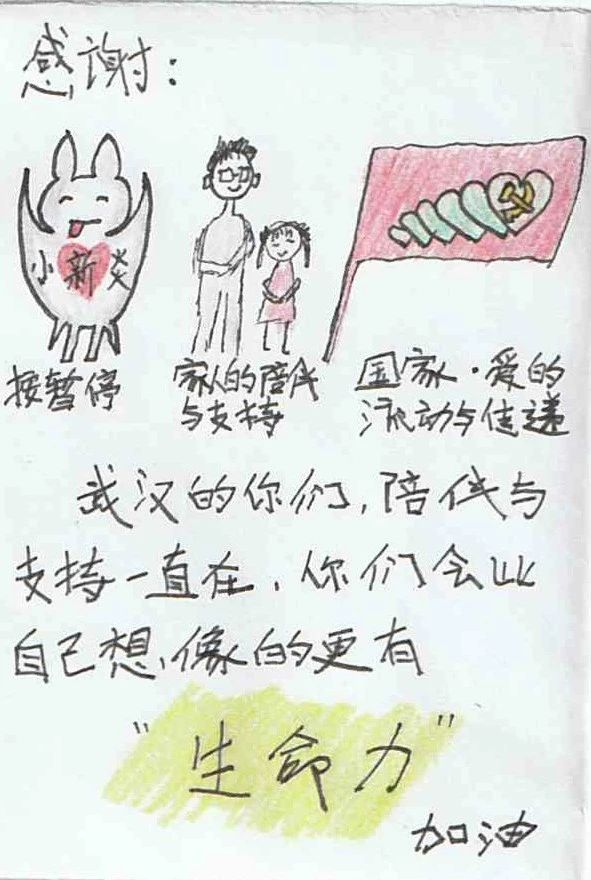 感谢：
小新炎
按暂停
家人的陪伴
与支持
国家·爱的
流动与传递
武汉的你们，陪伴与
支持一直在，你们会比
自己想像的更有
“生命力”
加油